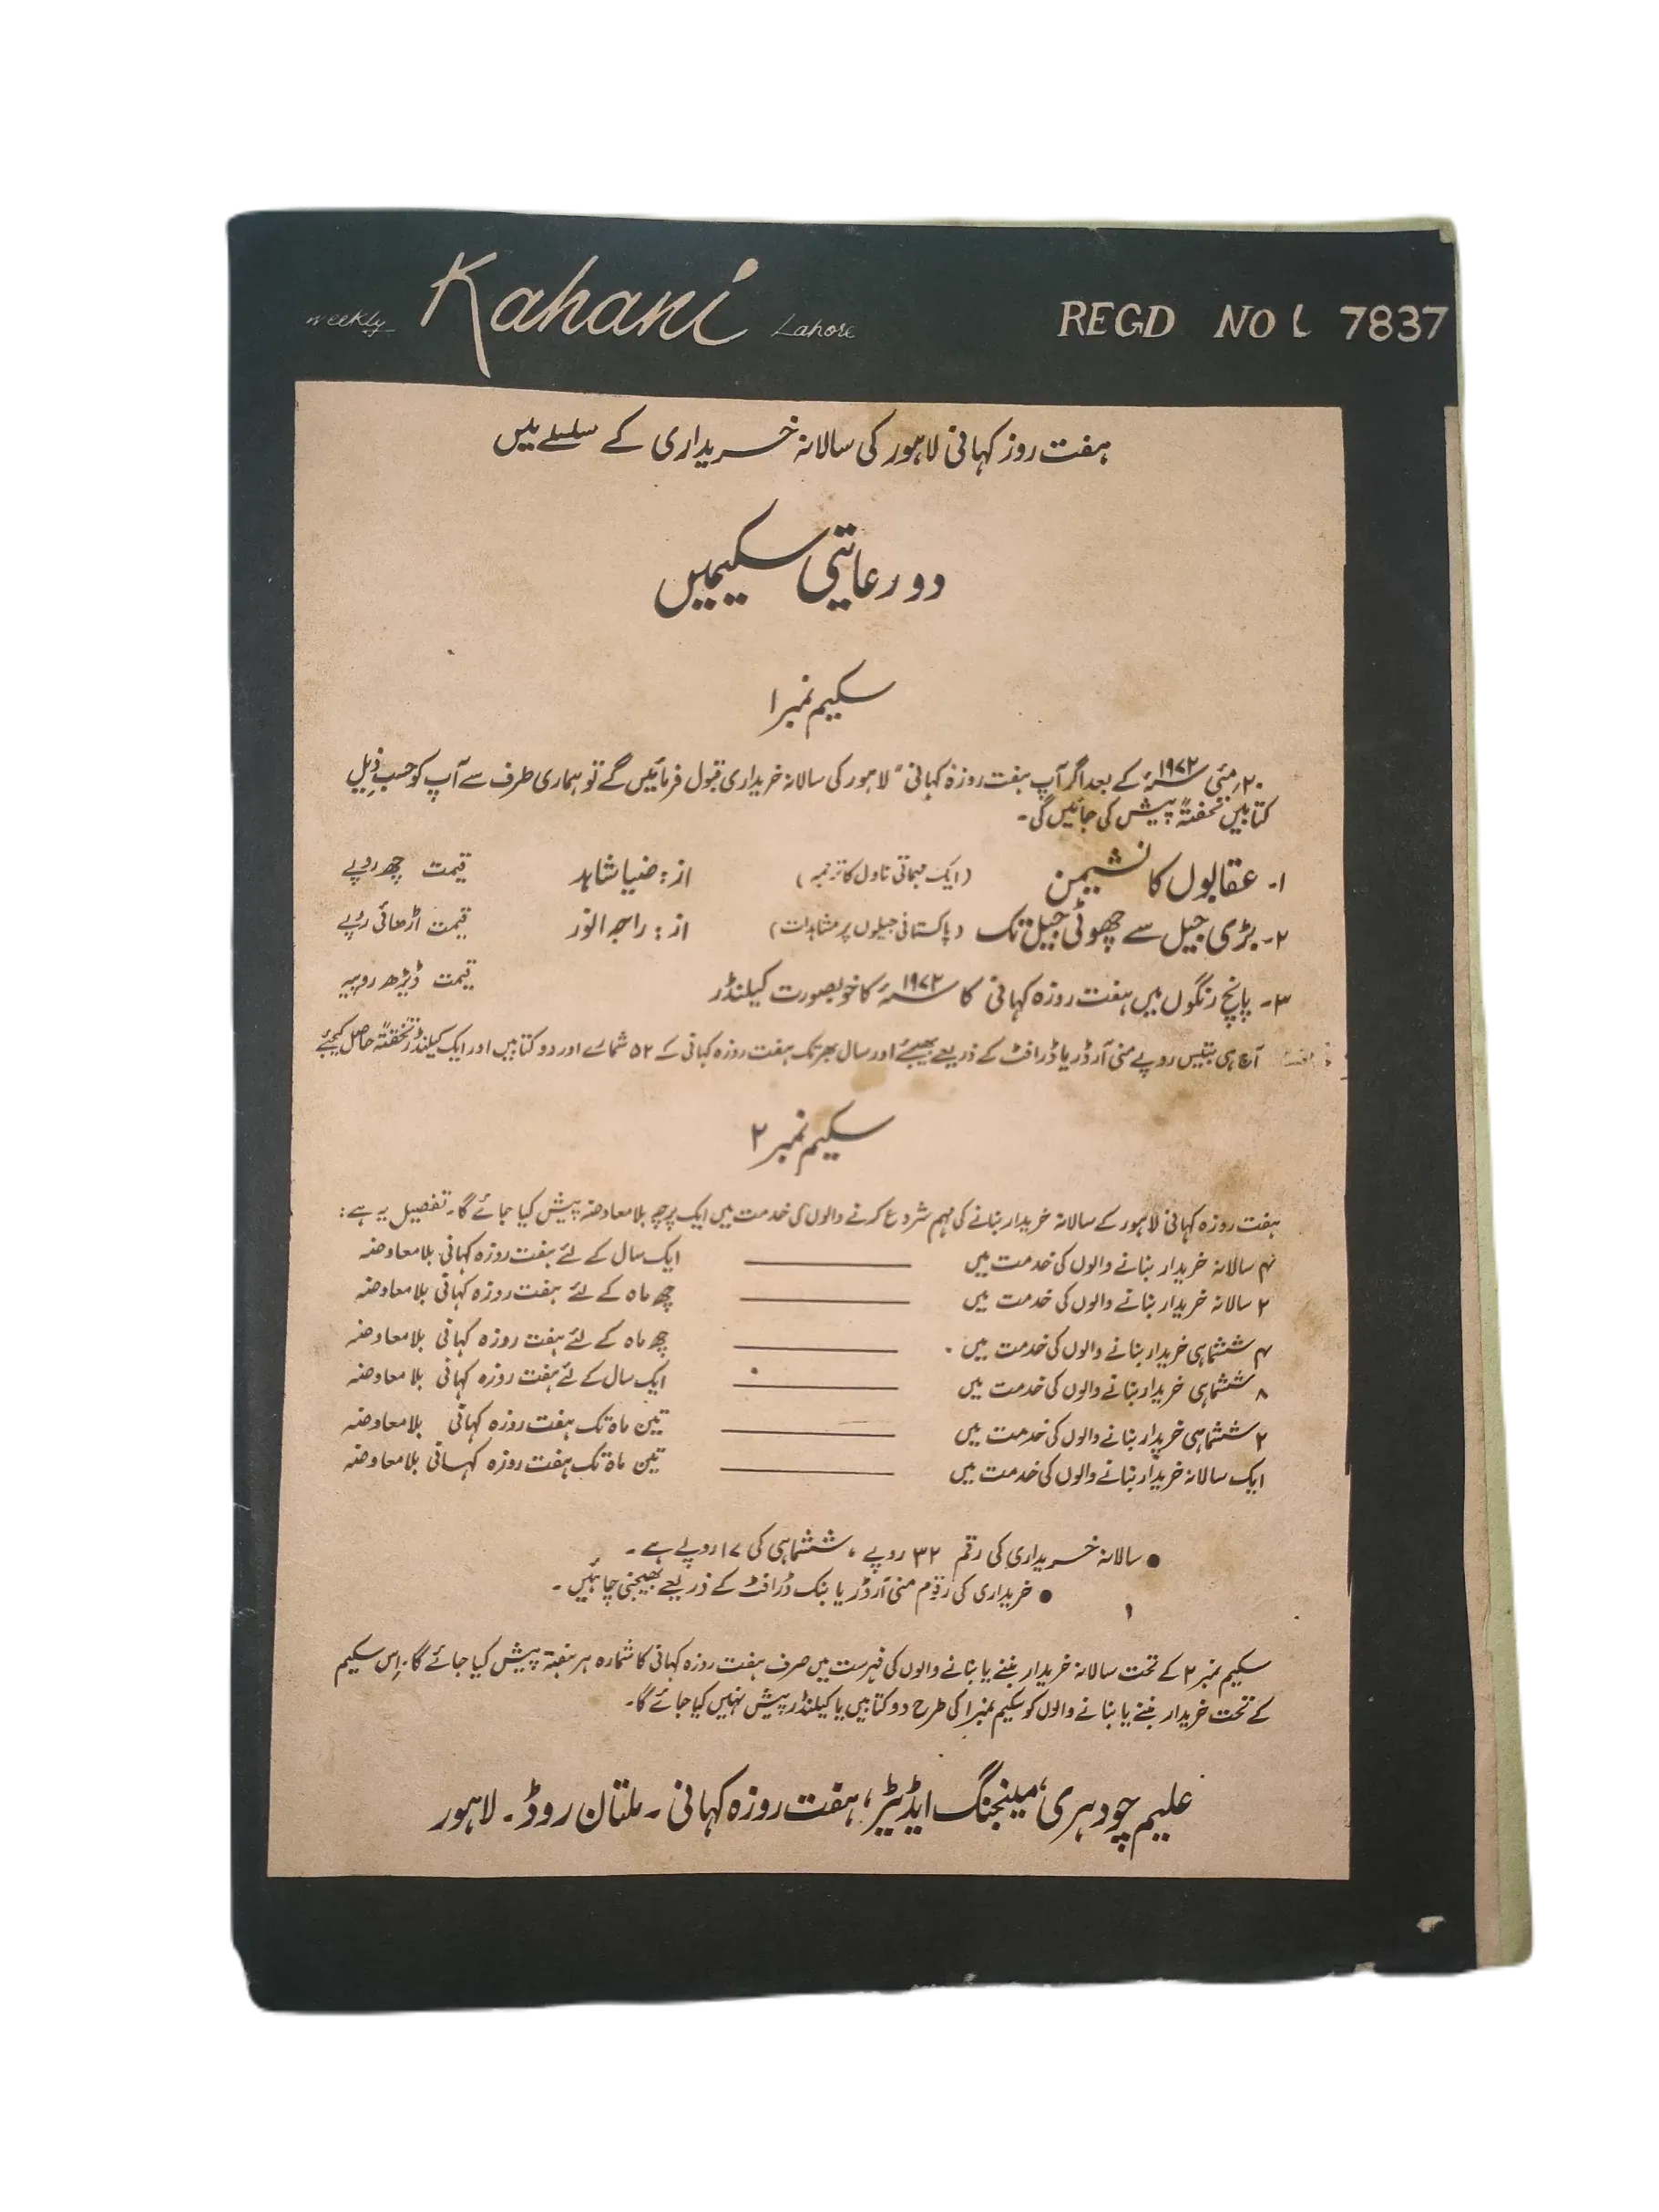 weekly Kahani Lahore REGD NO L 7837
ہفت روز کہانی لاہور کی سالانہ خریداری کے سلسلے میں
دو رعایتی سکیمیں
سکیم نمبر ۱
۲۰؍مئی ۱۹۷۲ء کے بعد اگر آپ ہفت روزہ کہانی" لاہور کی سالانہ خریداری قبول فرمائیں گے تو ہماری طرف سے آپ کو حسبِ ذیل
کتابیں تحفتہً پیش کی جائیں گی۔
۱- عقابوں کا نشیمن (ایک مہماتی ناول کا ترجمہ) از: ضیا شاہد قیمت چھ روپے
۲- بڑی جیل سے چھوٹی جیل تک (پاکستانی جیلوں پر مشاہدات) از: راجہ انور قیمت اڑھائی روپے
۳- پانچ رنگوں میں ہفت روزہ کہانی کا ۱۹۷۲ء کا خوبصورت کیلنڈر قیمت ڈیڑھ روپیہ
آج ہی بتیس روپے منی آرڈر یا ڈرافٹ کے ذریعے بھیجئے اور سال بھر تک ہفت روزہ کہانی کے ۵۲ شمارے اور دو کتابیں اور ایک کیلنڈر تحفتہً حاصل کیجئے
سکیم نمبر ۲
ہفت روزہ کہانی لاہور کے سالانہ خریدار بنانے کی مہم شروع کرنے والوں کی خدمت میں ایک پرچہ بلا معاوضہ پیش کیا جائے گا۔ تفصیل یہ ہے:
۴ سالانہ خریدار بنانے والوں کی خدمت میں ــــــــ ایک سال کے لئے ہفت روزہ کہانی بلا معاوضہ
۲ سالانہ خریدار بنانے والوں کی خدمت میں ــــــــ چھ ماہ کے لئے ہفت روزہ کہانی بلا معاوضہ
۴ ششماہی خریدار بنانے والوں کی خدمت میں ــــــــ چھ ماہ کے لئے ہفت روزہ کہانی بلا معاوضہ
۸ ششماہی خریدار بنانے والوں کی خدمت میں ــــــــ ایک سال کے لئے ہفت روزہ کہانی بلا معاوضہ
۲ ششماہی خریدار بنانے والوں کی خدمت میں ــــــــ تین ماہ تک ہفت روزہ کہانی بلا معاوضہ
ایک سالانہ خریدار بنانے والوں کی خدمت میں ــــــــ تین ماہ تک ہفت روزہ کہانی بلا معاوضہ
● سالانہ خریداری کی رقم ۳۲ روپے، ششماہی کی ۱۷ روپے ہے۔
● خریداری کی رقوم منی آرڈر یا بنک ڈرافٹ کے ذریعے بھیجنی چاہئیں۔
سکیم نمبر ۲ کے تحت سالانہ خریدار بننے یا بنانے والوں کی فہرست میں صرف ہفت روزہ کہانی کا شمارہ ہر ہفتہ پیش کیا جائے گا۔ اِس سکیم
کے تحت خریدار بننے یا بنانے والوں کو سکیم نمبر ۱ کی طرح دو کتابیں یا کیلنڈر پیش نہیں کیا جائے گا۔
علیم چودہری، مینجنگ ایڈیٹر، ہفت روزہ کہانی - ملتان روڈ - لاہور